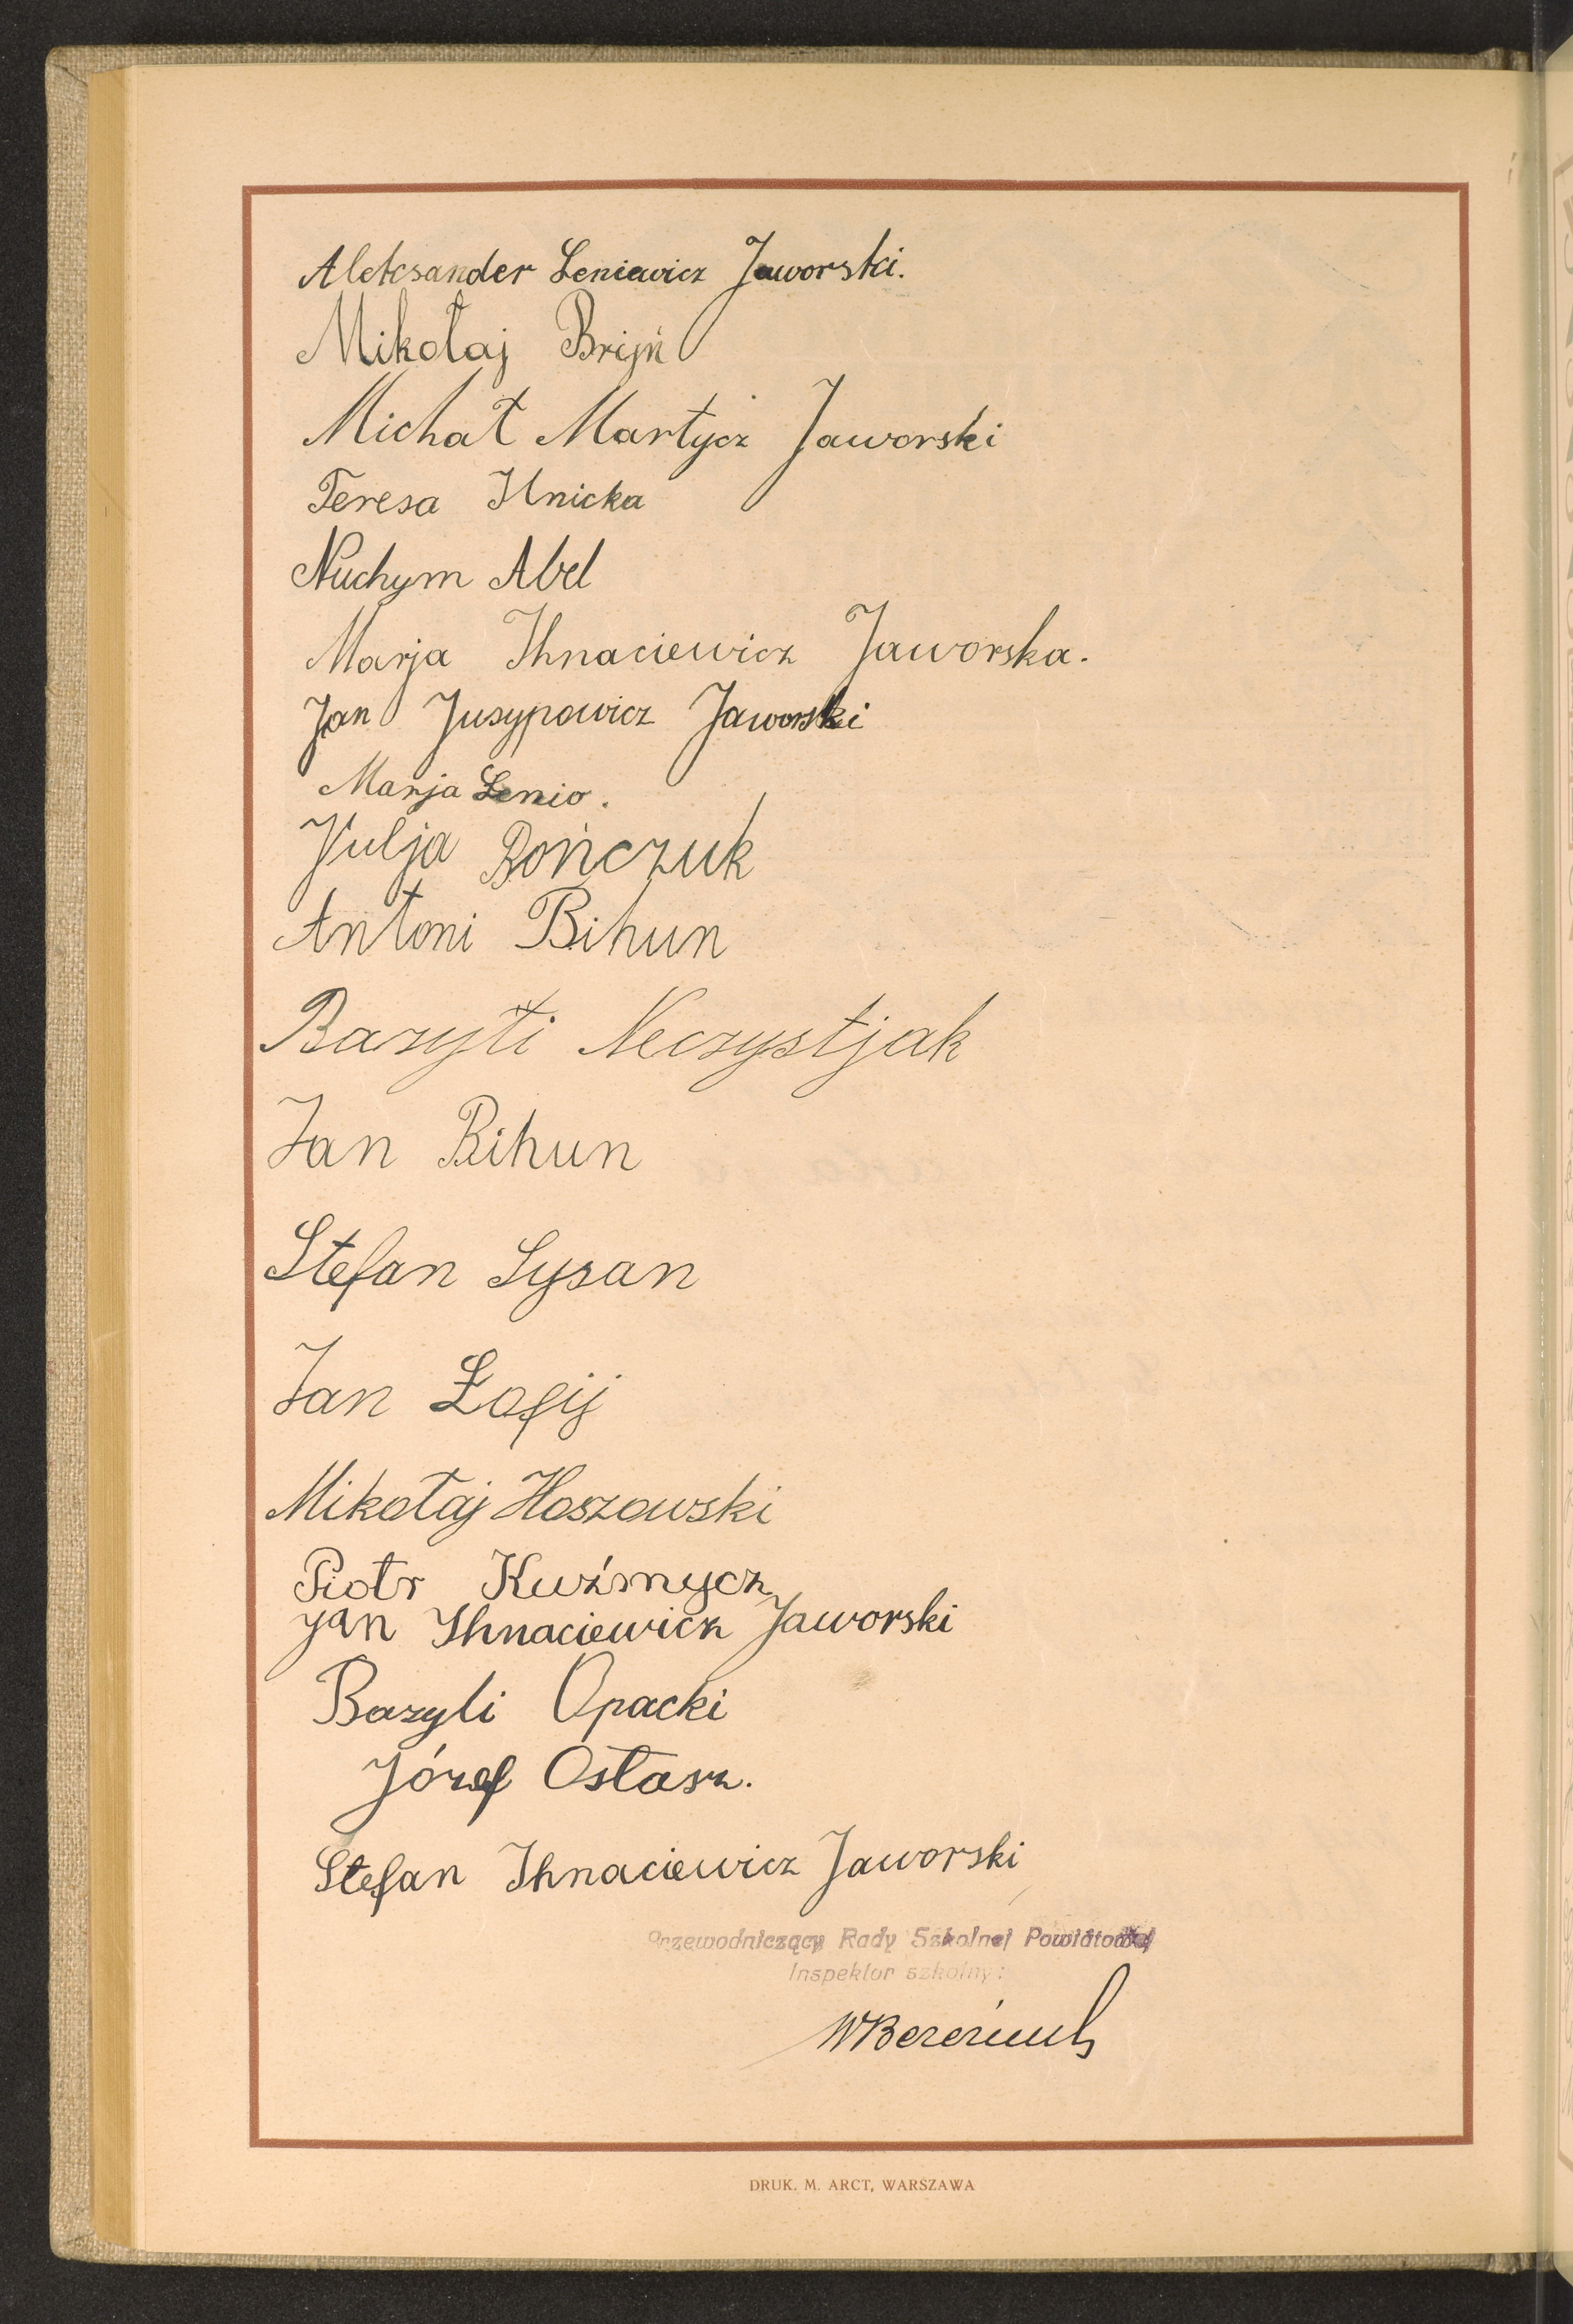 Aleksander Leniewicz Jaworski.
Mikołaj Bryń
Michał Martycz Jaworski
Teresa Ilnicka
Nuchym Abel
Marja Ihnaciewicz Jaworska.
Jan Jusypowicz Jaworski
Marja Lenio.
Julja Bończuk
Antoni Bihun
Bazyłi Neczystjak
Jan Bihun
Stefan Łysan
Jan Łofij
Mikołaj Hoszowski
Piotr Kuźmycz
Jan Ihnaciewicz Jaworski
Bazyli Opacki
Józef Ostasz.
Stefan Ihnaciewicz Jaworski
Przewodniczący Rady Szkolnej Powiatowej
Inspektor szkolny:
DRUK. M. ARCT, WARSZAWA